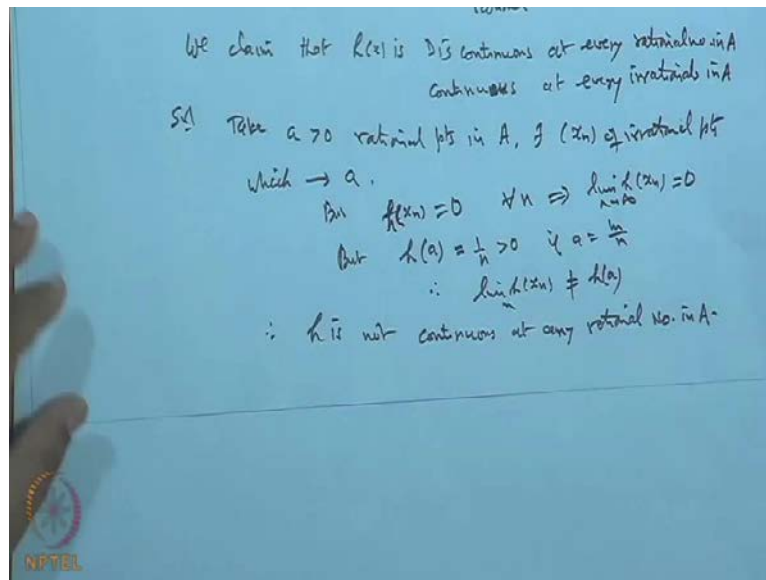 We claim that h(x) is Discontinuous at every rational no. in A
continuous at every irrationals in A
Sol Take a > 0 rational pts in A, ∃ (xn) of irrational pts
which → a.
But h(xn) = 0 ∀n ⇒ lim n→∞ h(xn) = 0
But h(a) = 1/n > 0 if a = m/n
∴ lim n h(xn) ≠ h(a)
∴ h is not continuous at any rational No. in A.
NPTEL